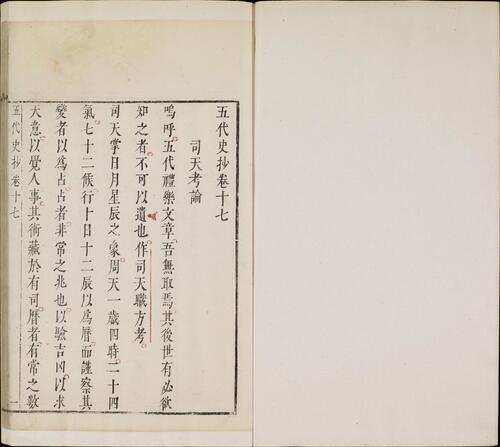 五代史抄卷十七
司天考論
嗚呼五代禮樂文章吾無取焉其後世有必欲
知之者不可以遺也作司天職方考
司天掌日月星辰之象周天一歲四時二十四
氣七十二候行十日十二辰以爲曆而謹察其
變者以爲占占者非常之兆也以驗吉凶以求
天意以覺人事其術藏於有司曆者有常之數
五代史抄卷十七
一